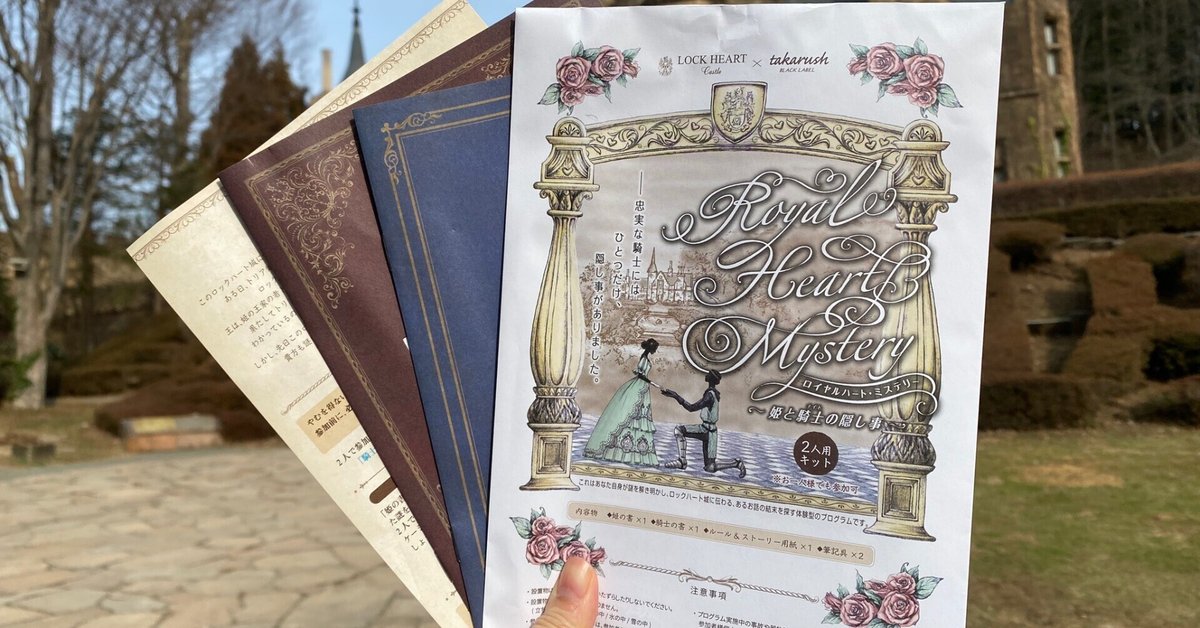 LOCK HEART Castle × takarush BLACK LABEL
Royal
Heart
Mystery
ロイヤルハート・ミステリー
〜姫と騎士の隠し事〜
――忠実な騎士には
ひとつだけ、
隠し事がありました。
2人用
キット
※お一人様でも参加可
これはあなた自身が謎を解き明かし、ロックハート城に伝わる、あるお話の結末を探す体験型のプログラムです。
内容物 ◆姫の書×1 ◆騎士の書×1 ◆ルール&ストーリー用紙×1 ◆筆記具×2
注意事項
・設置物
たずらしたりしないでください。
・設置物
ません。
(立
中/水の中/雪の中)
・プログラム実施中の事故や
このロックハート城に
ある日、トリア
ロッ
王は、姫の王家の
果たしてト
わかっているの
しかし、先日この
貴方も謎
やむを得ない
参加前に、必
2人で参加
「姫の
た謎を
2人で
ゲー
しょ